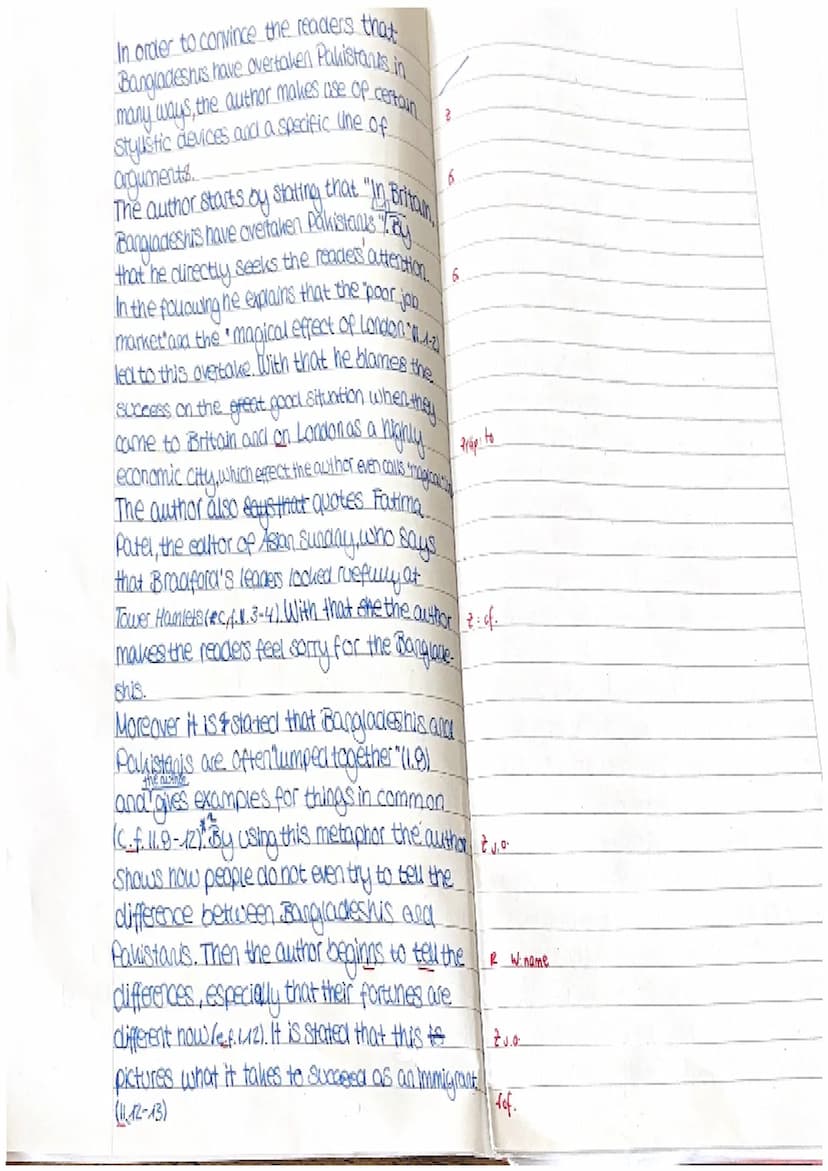 In order to convince the readers that
Bangladeshis have overtaken Pakistanis in
many ways, the author makes use of certain
stylistic devices and a specific line of
arguments.
The author starts by stating that "In Britain,
Bangladeshis have overtaken Pakistanis". By
that he directly seeks the readers' attention.
In the following he explains that the "poor job
market" and the "magical effect of London" (ll.1-2)
led to this overtake. With that he blames the
success on the great good situation when they
came to Britain and on London as a highly prep to
economic city, which effect the author even calls "magical"
The author also says that quotes Fatima
Patel, the editor of Asian Sunday, who says
that Bradford's leaders looked ruefully at
Tower Hamlets (c.f. ll.3-4). With that she the author z: cf.
makes the readers feel sorry for the Banglade-
shis.
Moreover it is stated that Bangladeshis and
Pakistanis are often "lumped together" (l.9)
the author
and gives examples for things in common
(c.f. ll.9-12). By using this metaphor the author z v.o.
shows how people do not even try to tell the
difference between Bangladeshis and
Pakistanis. Then the author beginns to tell the R W: name
differences, especially that their fortunes are
different now (c.f. l.12). It is stated that this is z v.o.
pictures what it takes to succeed as an immigrant
(ll.12-13) cf.